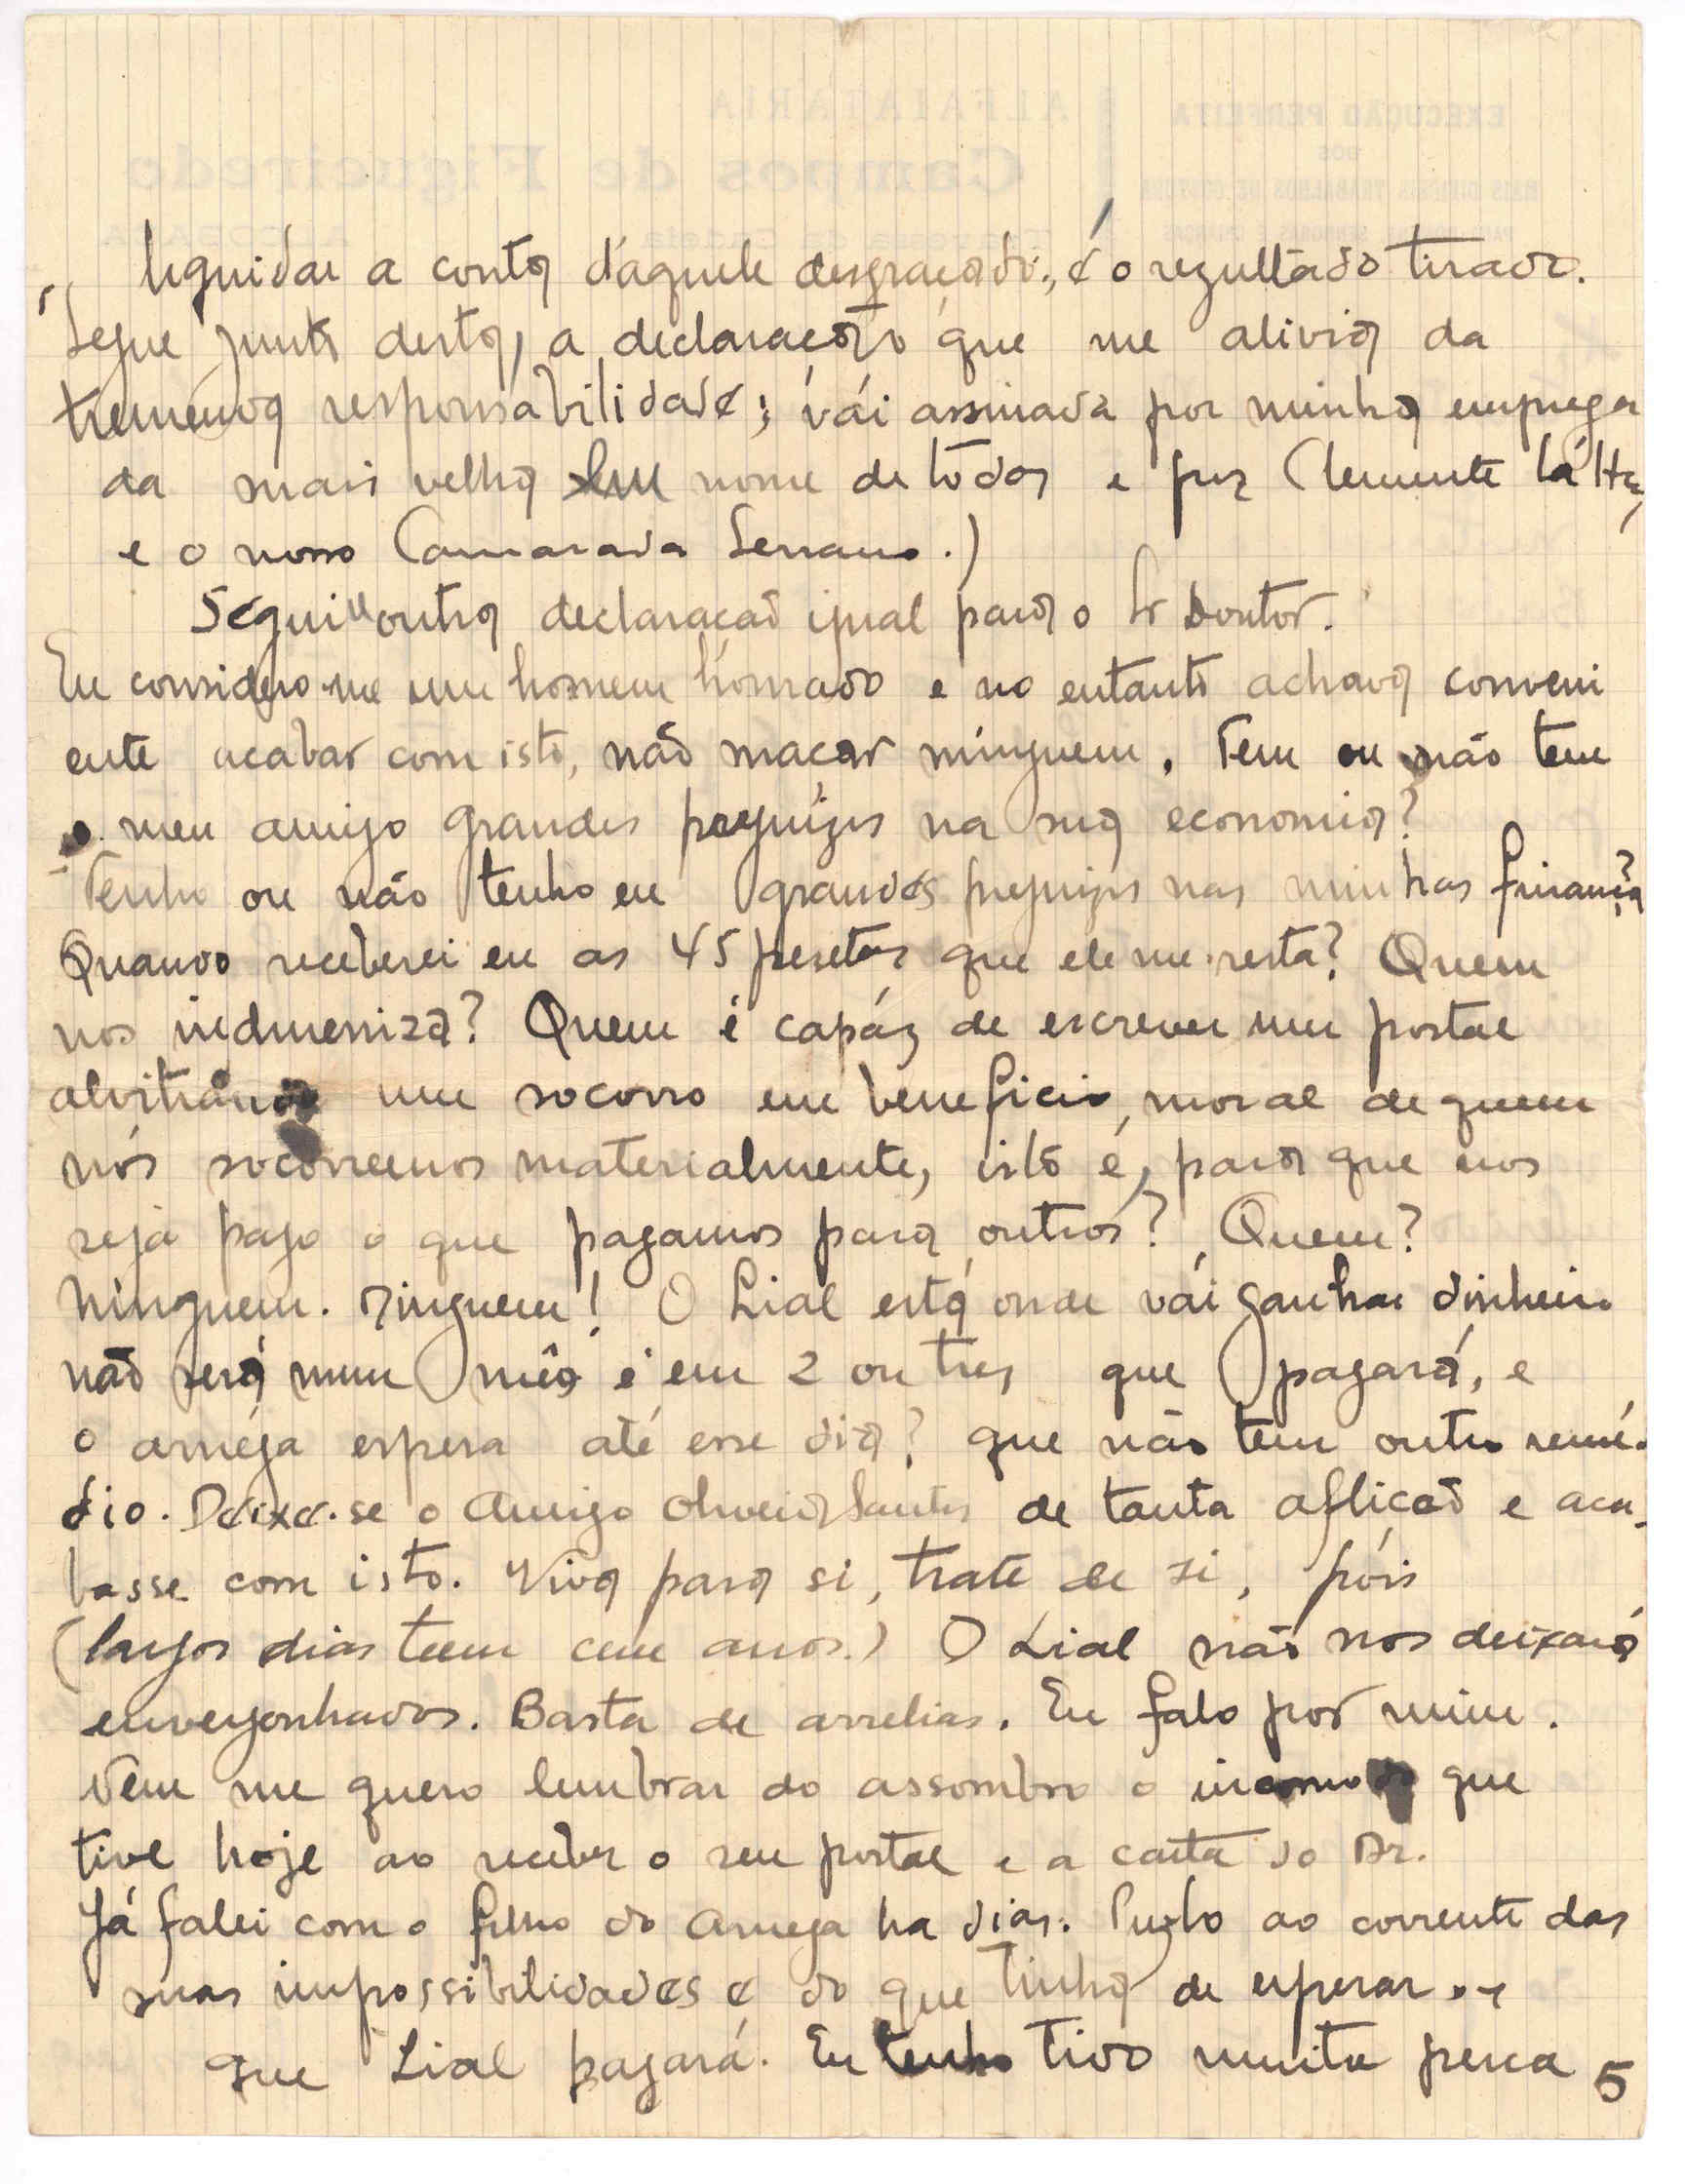 liquidar a conta d'aquele desgraçado:, é o rezultado tirado.
Segue junto desta, a declaração que me alivia da
tremenda responsabilidade; vái assinada por minha emprega
da mais velha em nome de todos e por Clemente
e o nosso Camarada Serrano.)
Segui outra declaração igual para o Sr Doutor.
Eu considero-me um homem honrado e no entanto achava conveni
ente acabar com isto, não maçar ninguem. Tem ou não tem
o meu amigo grandes prejuizos na sua economia?
Tenho ou não tenho eu grandes prejuizos nas minhas finança?
Quando receberei eu as 45 pesetas que ele me resta? Quem
nos indmeniza? Quem é capáz de escrever um postal
alvitrando um socorro em beneficio moral de quem
nós socorremos materialmente, isto é, para que nos
seja pago o que pagamos para outros? Quem?
Ninguem. Ninguem! O Lial está onde vái ganhar dinheiro
não será num mês é em 2 ou tres que pagará, e
o améga espera até esse dia? que não tem outro remé-
dio. Deixe-se o Amigo Oliveira Santos de tanta aflição e aca-
basse com isto. Viva para si, trate de si, pois
(largos dias teem cem anos.) O Lial não nos deixará
envergonhados. Basta de arrelias. Eu falo por mim.
Nem me quero lembrar do assombro o incomodo que
tive hoje ao receber o seu postal e a carta do Dr.
Já falei com o filho do Amega ha dias. Puzlo ao corrente das
suas impossibilidades e do que tinha de esperar
que Lial pagará. Eu tenho tido muita perca 5
EXECUÇÃO PERFEITA
DOS
MAIS DIFICEIS TRABALHOS DE COSTURA
ALFAIATARIA
Campos de Figueiredo